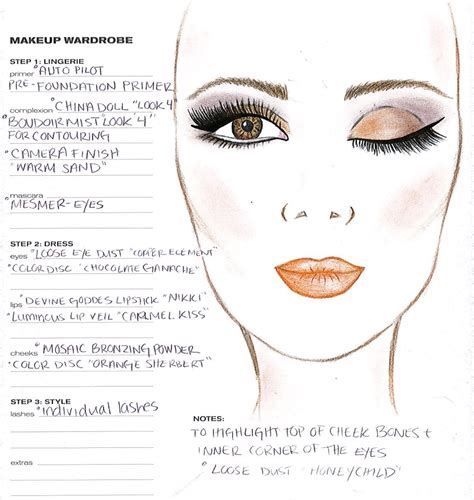 MAKEUP WARDROBE
STEP 1: LINGERIE
primer *AUTO PILOT
PRE-FOUNDATION PRIMER
complexion *CHINA DOLL "LOOK 4"
BOUDOIR MIST "LOOK 4"
FOR CONTOURING
*CAMERA FINISH
"WARM SAND"
mascara
*MESMER-EYES
STEP 2: DRESS
eyes *LOOSE EYE DUST "COPPER ELEMENT"
*COLOR DISC "CHOCOLATE GANACHE"
lips *DEVINE GODDES LIPSTICK "NIKKI"
*LUMINOUS LIP VEIL "CARMEL KISS"
cheeks *MOSAIC BRONZING POWDER
*COLOR DISC "ORANGE SHERBERT"
STEP 3: STYLE
lashes *individual lashes
extras
NOTES:
TO HIGHLIGHT TOP OF CHEEK BONES +
INNER CORNER OF THE EYES
"LOOSE DUST "HONEYCHILD"